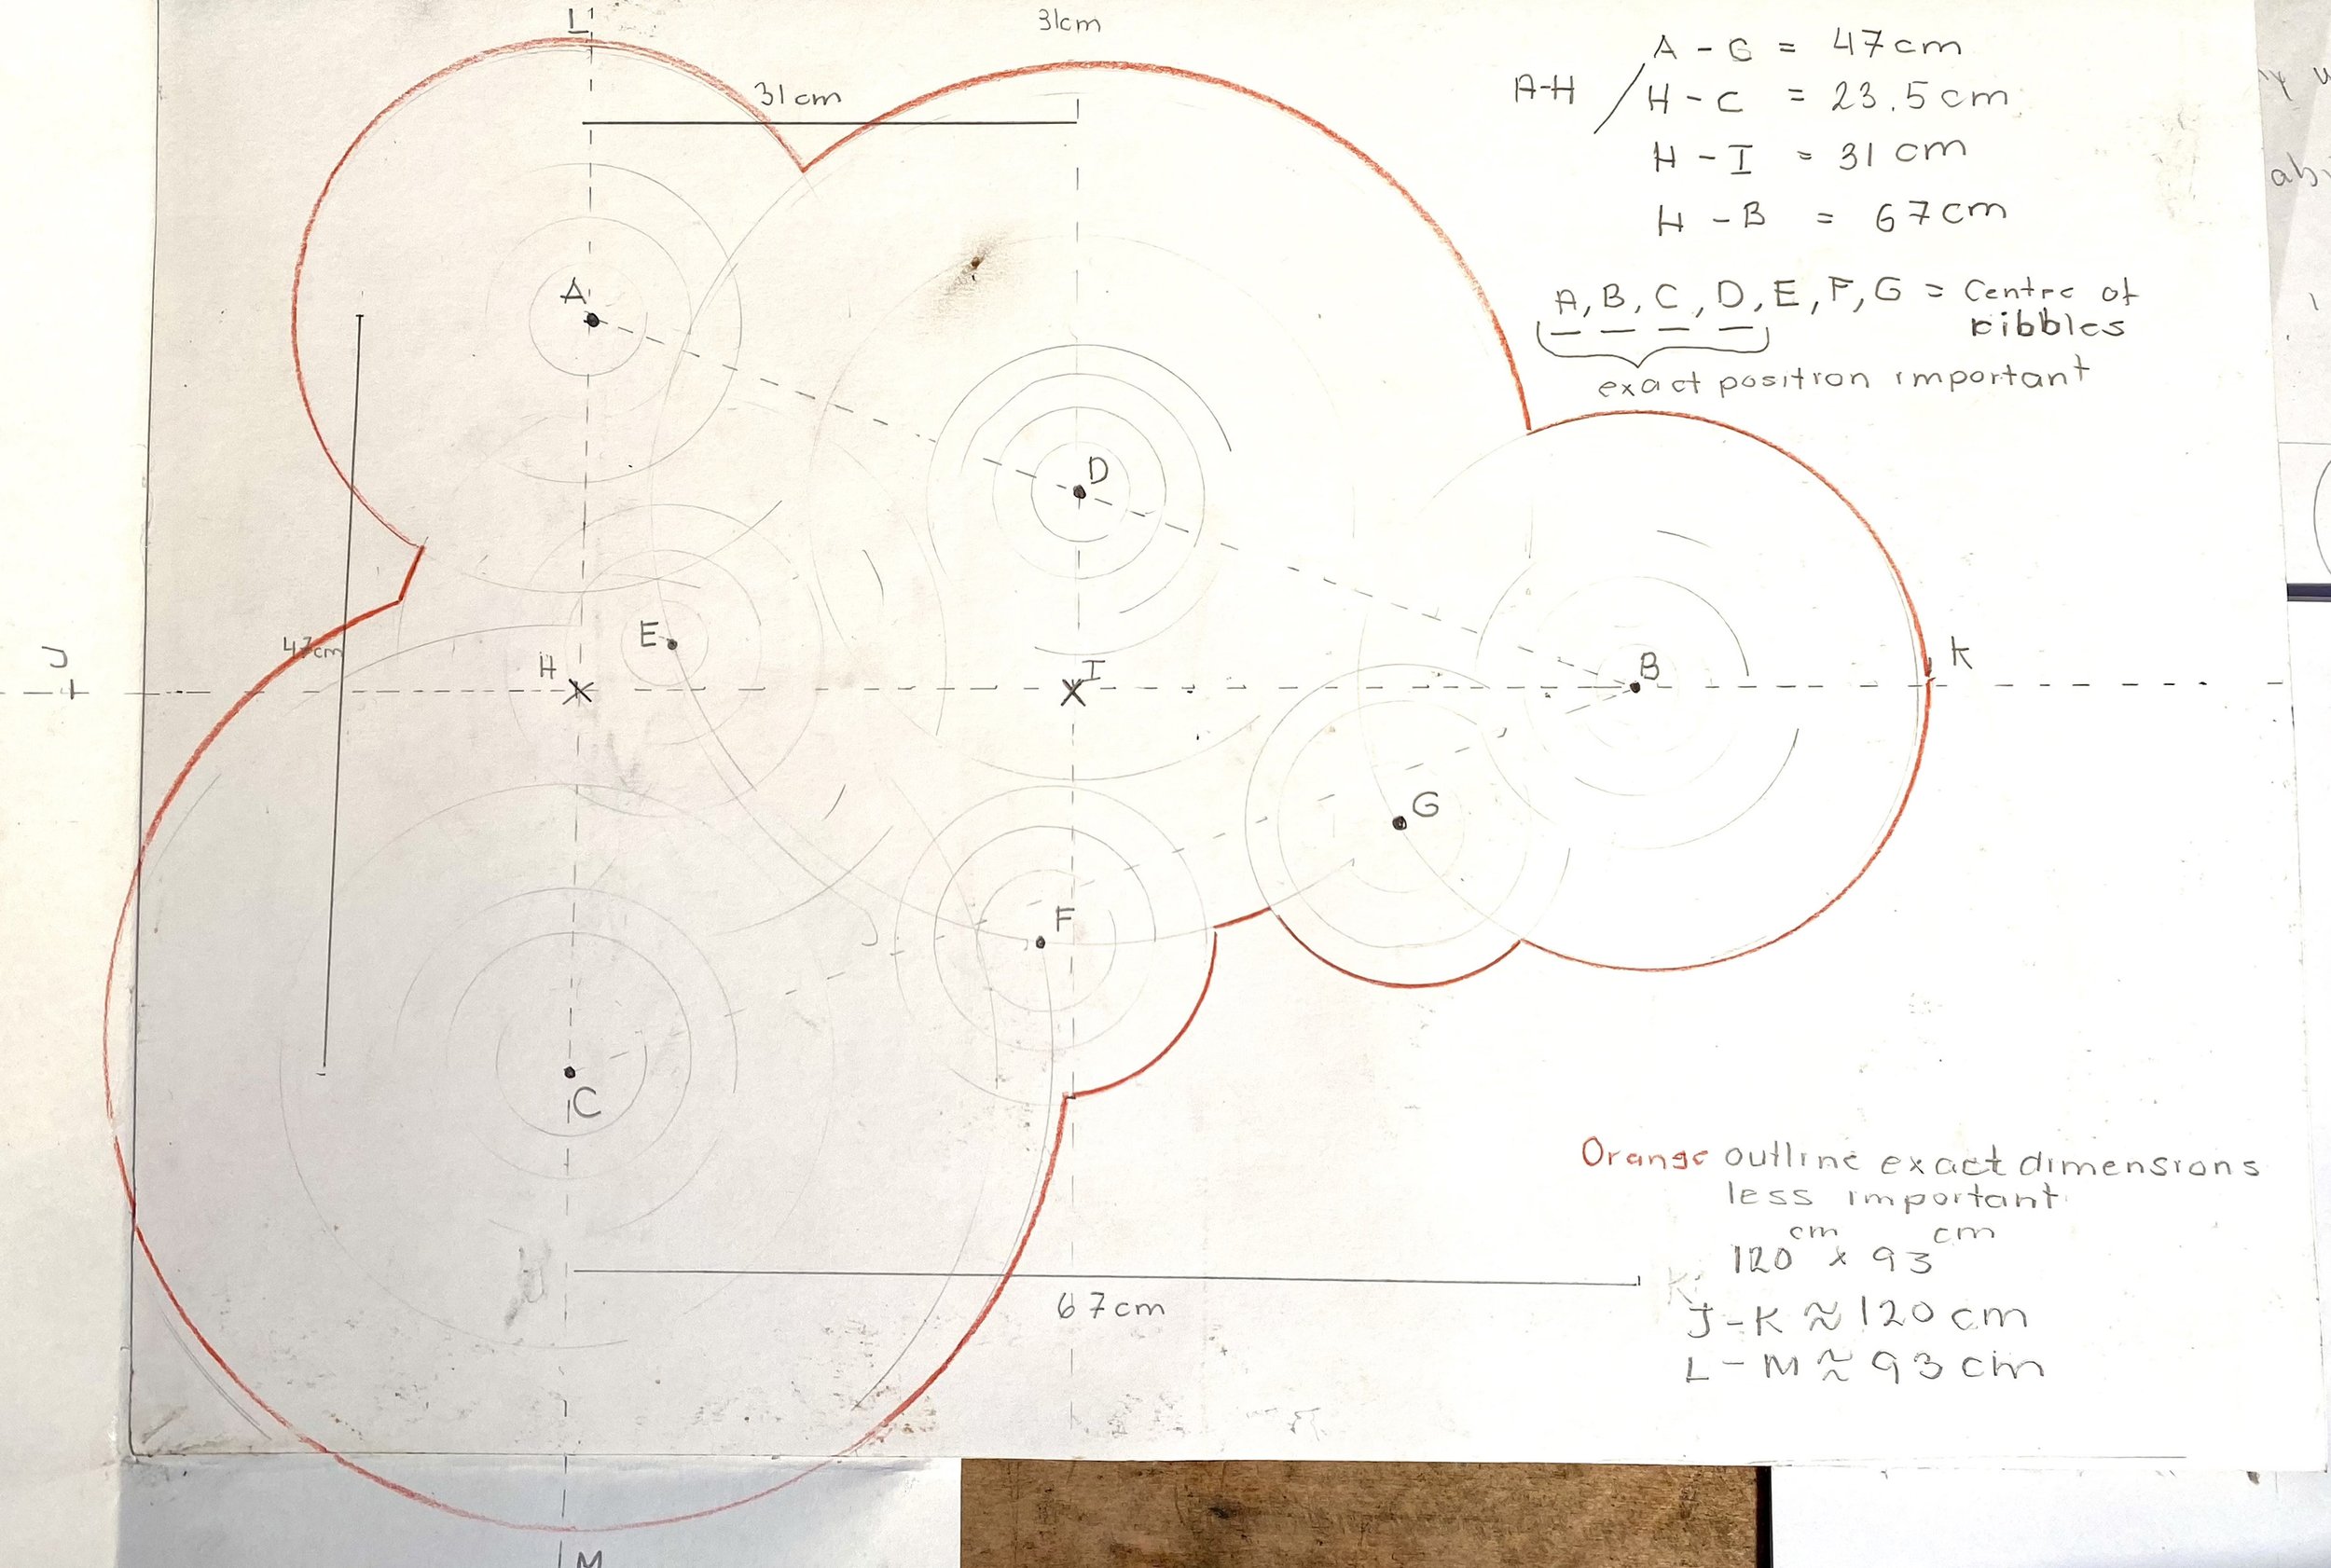 L
31cm
31cm
A - G = 47cm
A-H / H - C = 23.5cm
H - I = 31cm
H - B = 67cm
A, B, C, D, E, F, G = Centre of
ribbles
exact position important
A
D
47cm
E
H
I
B
K
J
G
F
C
67cm
Orange outline exact dimensions
less important
120 cm x 93 cm
J-K ≈ 120 cm
L - M ≈ 93 cm
M